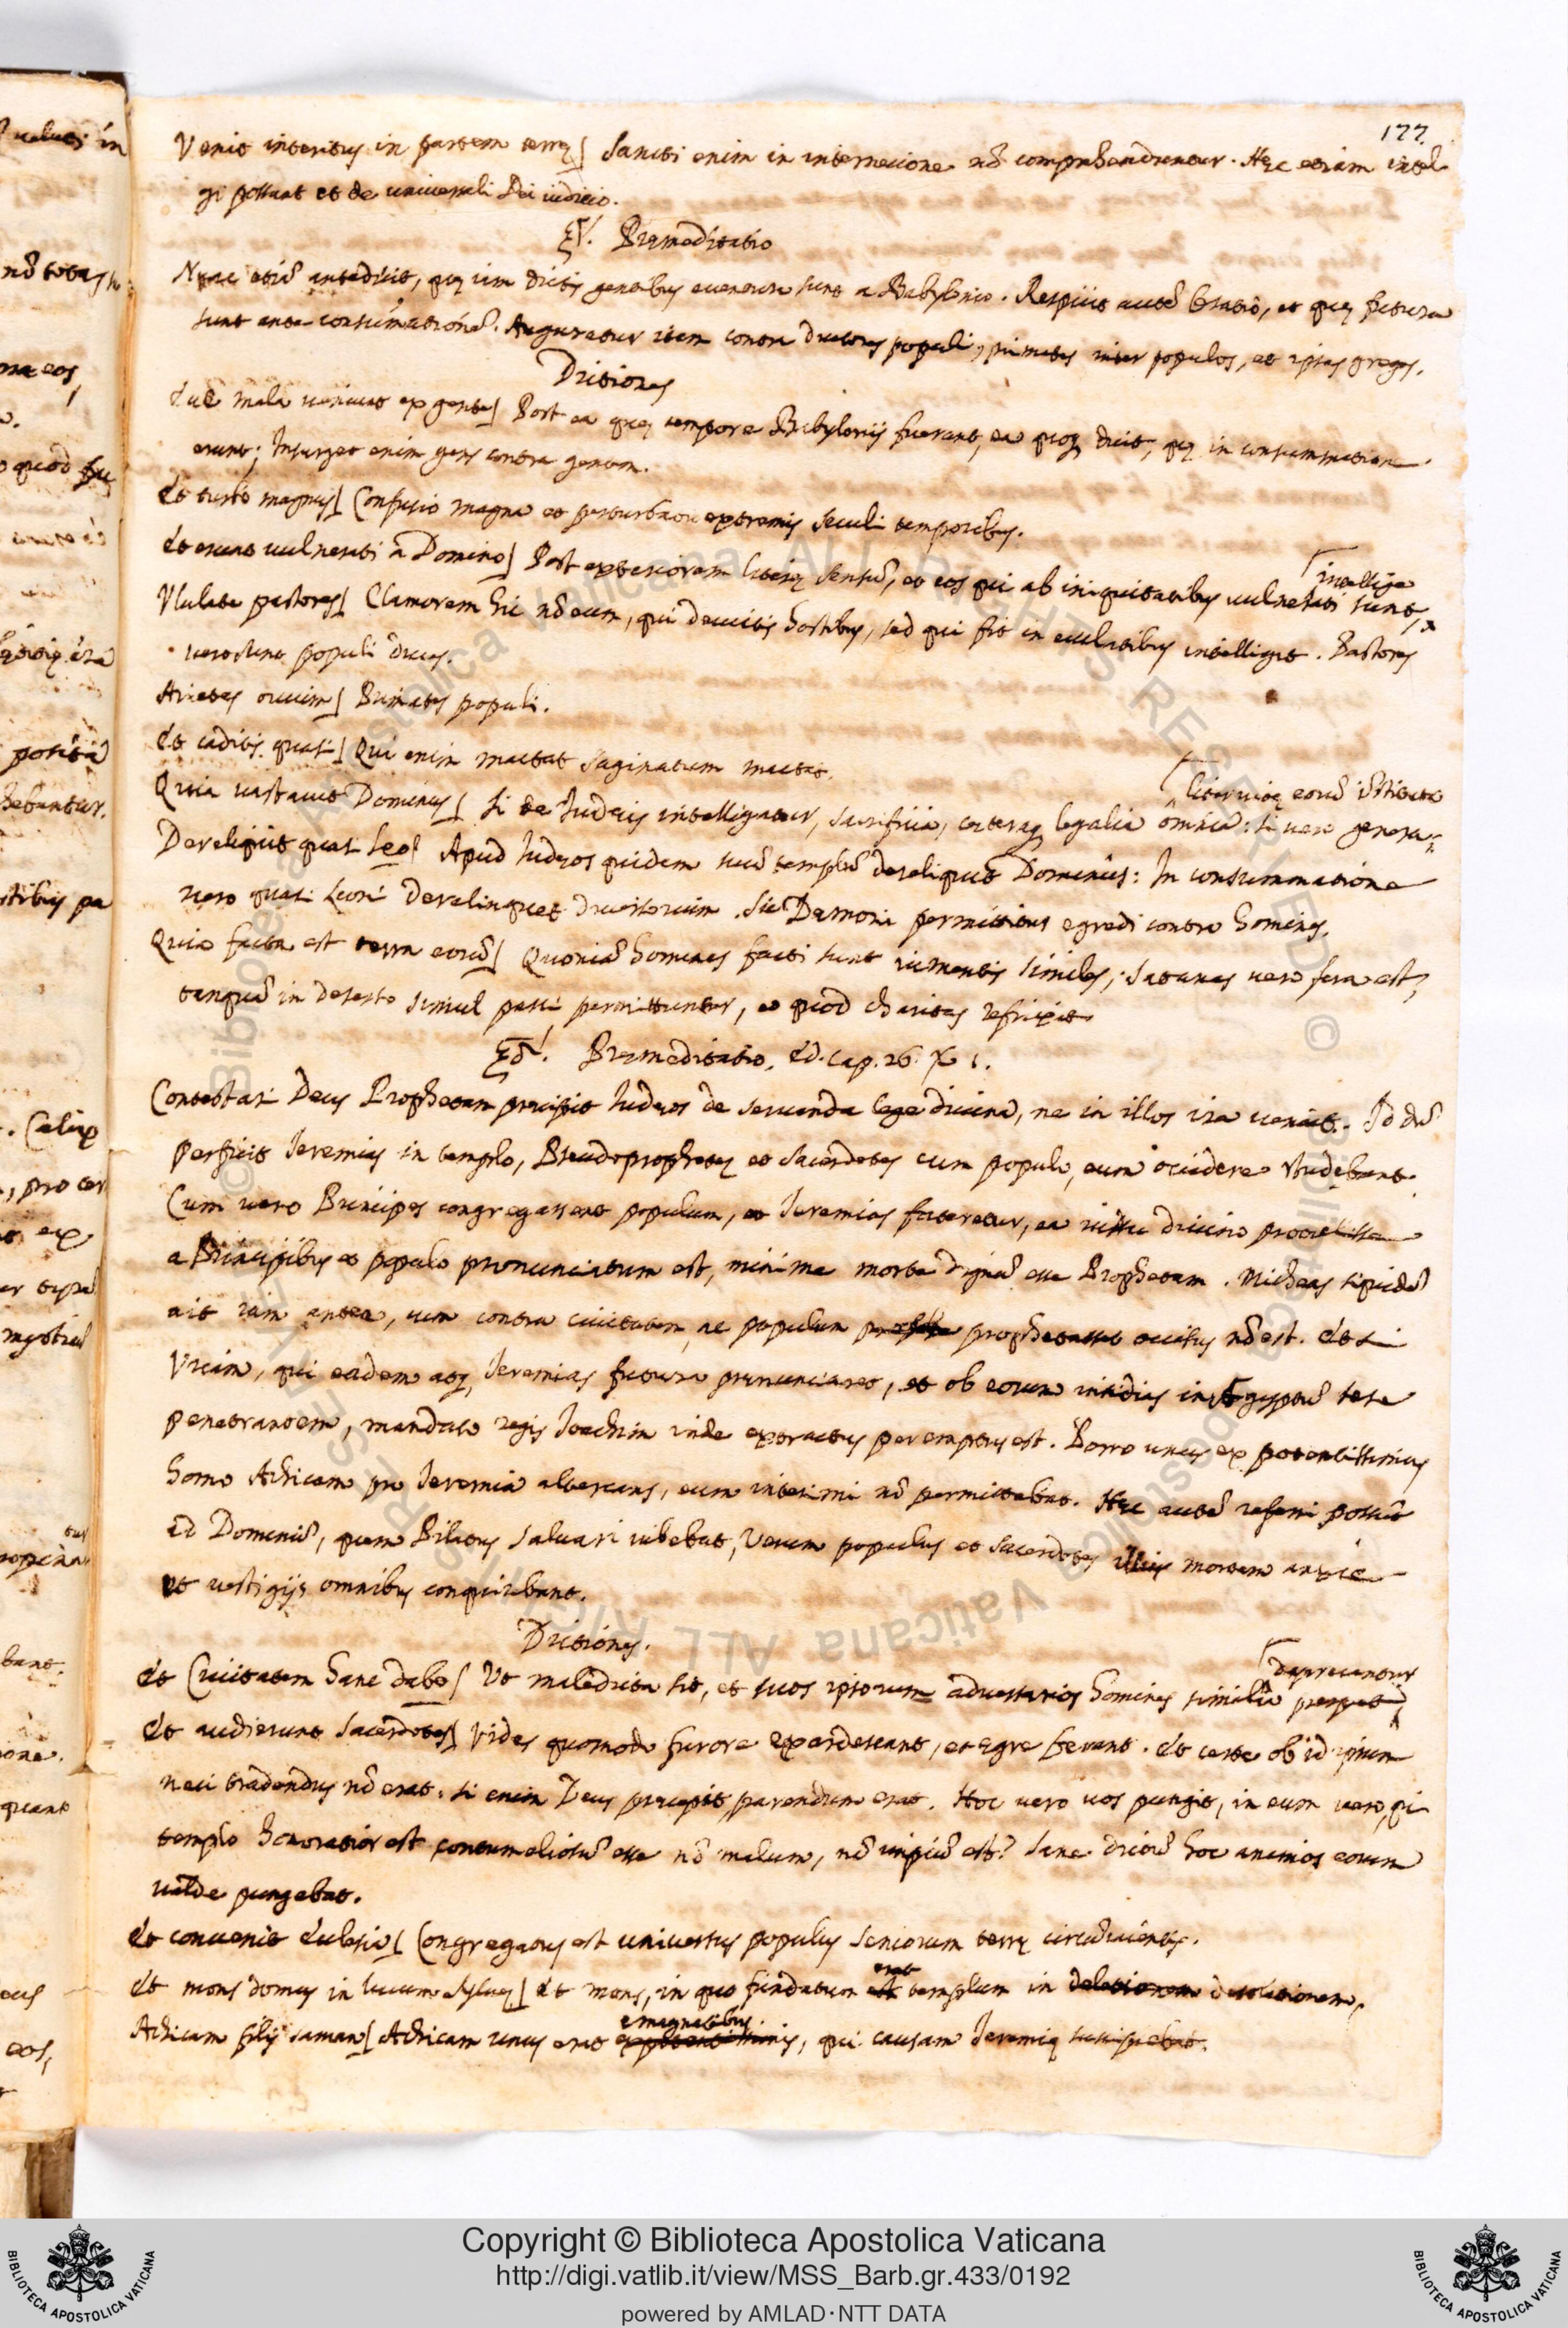 177.
Venit interitus in partem terrę] Sancti enim in internecione nõ comprehenduntur. Hęc etiam intel
gi possunt et de universali Dei iudicio.
ξγ'. Pręmeditatio
Nunc etiã antedicit, quę iam dictis gentibus eventura sunt a Babylonio. Respicit autẽ Oratio, et quę futura
sunt ante consũmationẽ. Auguratur item contra ductores populi, primates inter populos, et ipsos greges.
Dictiones
Ecce mala veniunt ex gente] Post ea quę tempore Babylonij fuerant, ea quoq dicit, quę in consummatione
erunt; Insurget enim gens contra gentem.
Et turbo magnus] Confusio magna et perturbatio extremis seculi temporibus.
Et erunt vulnerati à Domino] Post exteriorem literę sensũ, et eos qui ab iniquitatibus vulnerati sunt, intellige
Ululate pastores] Clamorem hic nõ eum, qui devictis hostibus, sed qui fit in exulatibus intelligit. Pastores
vero sunt populi duces.
Arietes ovium] Primates populi.
Et cadetis quasi] Qui enim mactat saginatum mactat.
Quia vastavit Dominus] Si de Iudęis intelligatur, sacrificia, ceteraq legalia omnia: si vero genera-
literviq eorũ institute
Dereliquit quasi Leo] Apud Iudęos quidem suũ templũ dereliquit Dominus: In consummatione
vero quasi Leoni derelinquet diversorium. Sic Dęmoni permittitur egredi contra homines.
Quia facta est terra eorũ] Quoniã homines facti sunt iumentis similes, Satanas vero fera est,
tanquã in deserto simul pasci permittuntur, eo quod charitas refrixit.
ξδ'. Pręmeditatio. Ed. cap. 26. X 1.
Contestari Deus Prophetam pręcipit Iudęos de servanda lege divina, ne in illos ira veniat. Id dũ
perficit Ieremias in templo, Pseudoprophetę et Sacerdotes cum populo, eum occidere studebant.
Cum vero Principes congregassent populum, et Ieremias fateretur, ea iussu divino protulisse
a Principibus et populo pronunciatum est, minime morte dignũ esse Prophetam. Micheas siquidẽ
ait iam antea, cum contra civitatem, ac populum prophetasset occisus nõ est. Et
Uriam, qui eadem atq Ieremias futura pronunciaret, et ob eorum insidias in Ęgyptũ sese
penetrantem, mandato regis Ioachim inde extractus peremptus est. Porro unus ex potentissimis
homo Achicam pro Ieremia altercans, eum interimi nõ permittebat. Hęc autẽ referri possunt
ad Dominũ, quem Pilatus salvari iubebat, Verum populus et Sacerdotes illius mortem anxie
et vestigijs omnibus conquirebant.
Dictiones.
Et Civitatem hanc dabo] Ut maledicta sit, et suos ipsorum adversarios homines similia deprecentur
Et audierunt Sacerdotes] Vides quomodo furore exardescant, et ęgre ferant. Et certe ob id ipsum
neci tradendus nõ erat: si enim Deus pręcepit, parendum erat. Hoc vero vos pungit, in eum vero, qui
templo honoratior est contumeliosũ esse nõ malum, nõ impiũ est? Sane dictũ hoc animos eorum
valde pungebat.
Et convenit Ecclesia] Congregatus est universus populus Seniorum terrę circũiacentis.
Et mons domus in lucum sylvę] Et mons, in quo fundatum erat templum in desolationem,
Achicam filij Saman] Achicam unus erat e magnatibus, qui causam Ieremię suscipiebat.
Copyright © Biblioteca Apostolica Vaticana
http://digi.vatlib.it/view/MSS_Barb.gr.433/0192
powered by AMLAD·NTT DATA
BIBLIOTECA APOSTOLICA VATICANA
BIBLIOTECA APOSTOLICA VATICANA